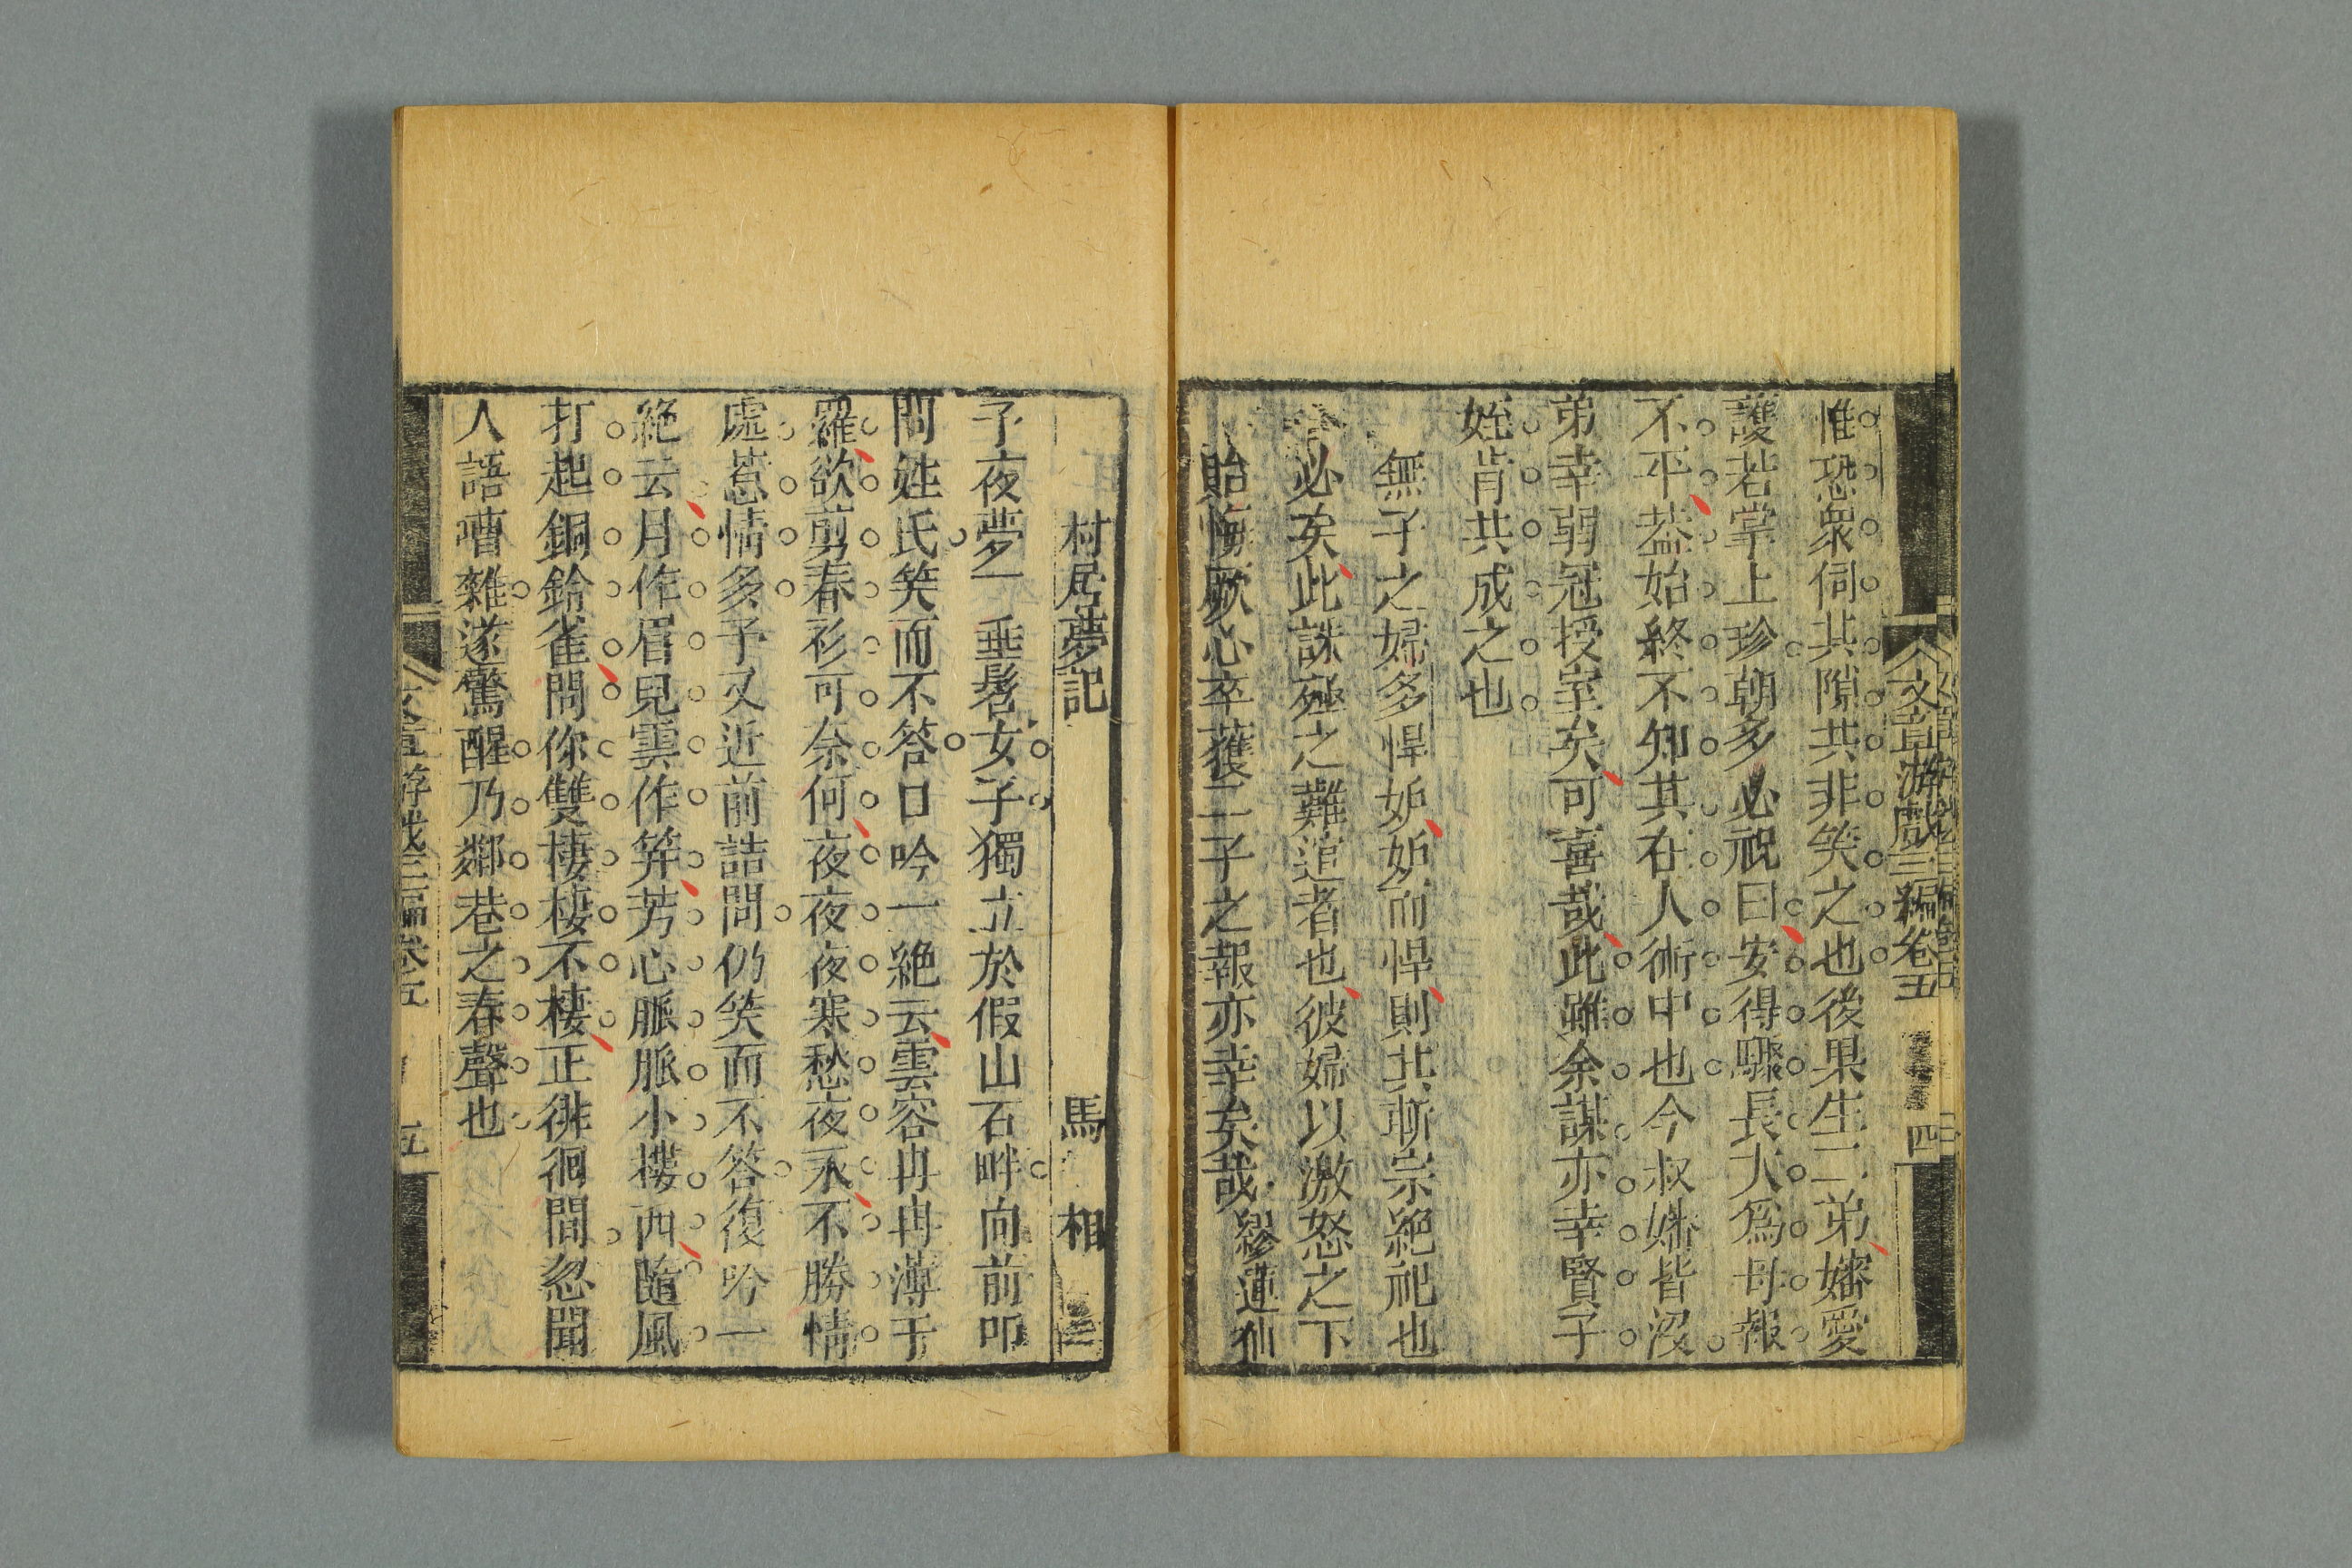 文章游戲三編卷五 四
惟恐衆伺其隙共非笑之也後果生二弟嬸愛
護若掌上珍朝多必祝曰安得驟長大爲母報
不平葢始終不知其在人術中也今叔嬸皆沒
弟幸弱冠授室矣可喜哉此雖余謀亦幸賢子
姪肯共成之也
無子之婦多悍妒妒而悍則其斬宗絕祀也
必矣此誅殛之難逭者也彼婦以激怒之下
貽悔厥心卒獲二子之報亦幸矣哉 繆蓮仙
村居夢記 馬 相
子夜夢一垂髫女子獨立於假山石畔向前叩
問姓氏笑而不答口吟一絕云雲容冉冉薄于
羅欲剪春衫可奈何夜夜夜寒愁夜永不勝情
處惹情多予又近前詰問仍笑而不答復吟一
絕云月作眉兒雲作笄芳心脈脈小樓西隨風
打起銅鈴雀問你雙棲棲不棲正徘徊間忽聞
人語嘈雜遂驚醒乃鄰巷之春聲也
文章游戲三編卷五 五